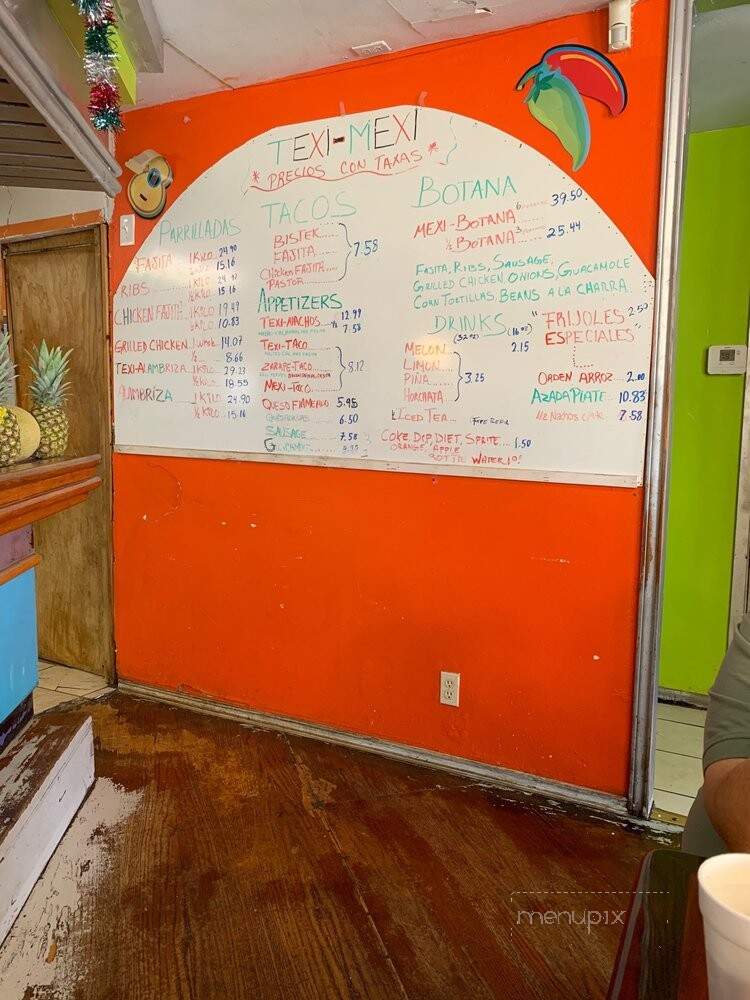 TEXI-MEXI
* PRECIOS CON TAXAS *
PARRILLADAS
FAJITA 1 KILO 24.90
15.16
RIBS 1 KILO 24.90
½ KILO 15.16
CHICKEN FAJITA 1 KILO 19.49
½ KILO 10.83
GRILLED CHICKEN 1 WHOLE 14.07
½ 8.66
TEXI-ALAMBRIZA 1 KILO 29.23
½ KILO 18.55
ALAMBRIZA 1 KILO 24.90
½ KILO 15.16
TACOS
BISTEK
FAJITA
CHICKEN FAJITA
PASTOR
7.58
APPETIZERS
TEXI-NACHOS 12.99
½ 7.58
TEXI-TACO
ZARAPE-TACO
MEXI-TACO
8.12
QUESO FLAMEADO 5.95
QUESADILLAS 6.50
SAUSAGE 7.58
GUACAMOLE
BOTANA
MEXI-BOTANA 6 PERSONAS 39.50
½ BOTANA 3 25.44
FAJITA, RIBS, SAUSAGE,
GRILLED CHICKEN, ONIONS, GUACAMOLE
CORN TORTILLAS, BEANS A LA CHARRA.
DRINKS
(32 oz) (16 oz)
MELON 2.15
LIMON
PIÑA
HORCHATA
3.25
ICED TEA FREE REFILL
COKE, DR.P, DIET, SPRITE 1.50
ORANGE, APPLE
BOTTLE WATER 1.01
"FRIJOLES ESPECIALES" 2.50
ORDEN ARROZ 2.00
AZADA PLATE 10.83
½ NACHOS 7.58
menupix